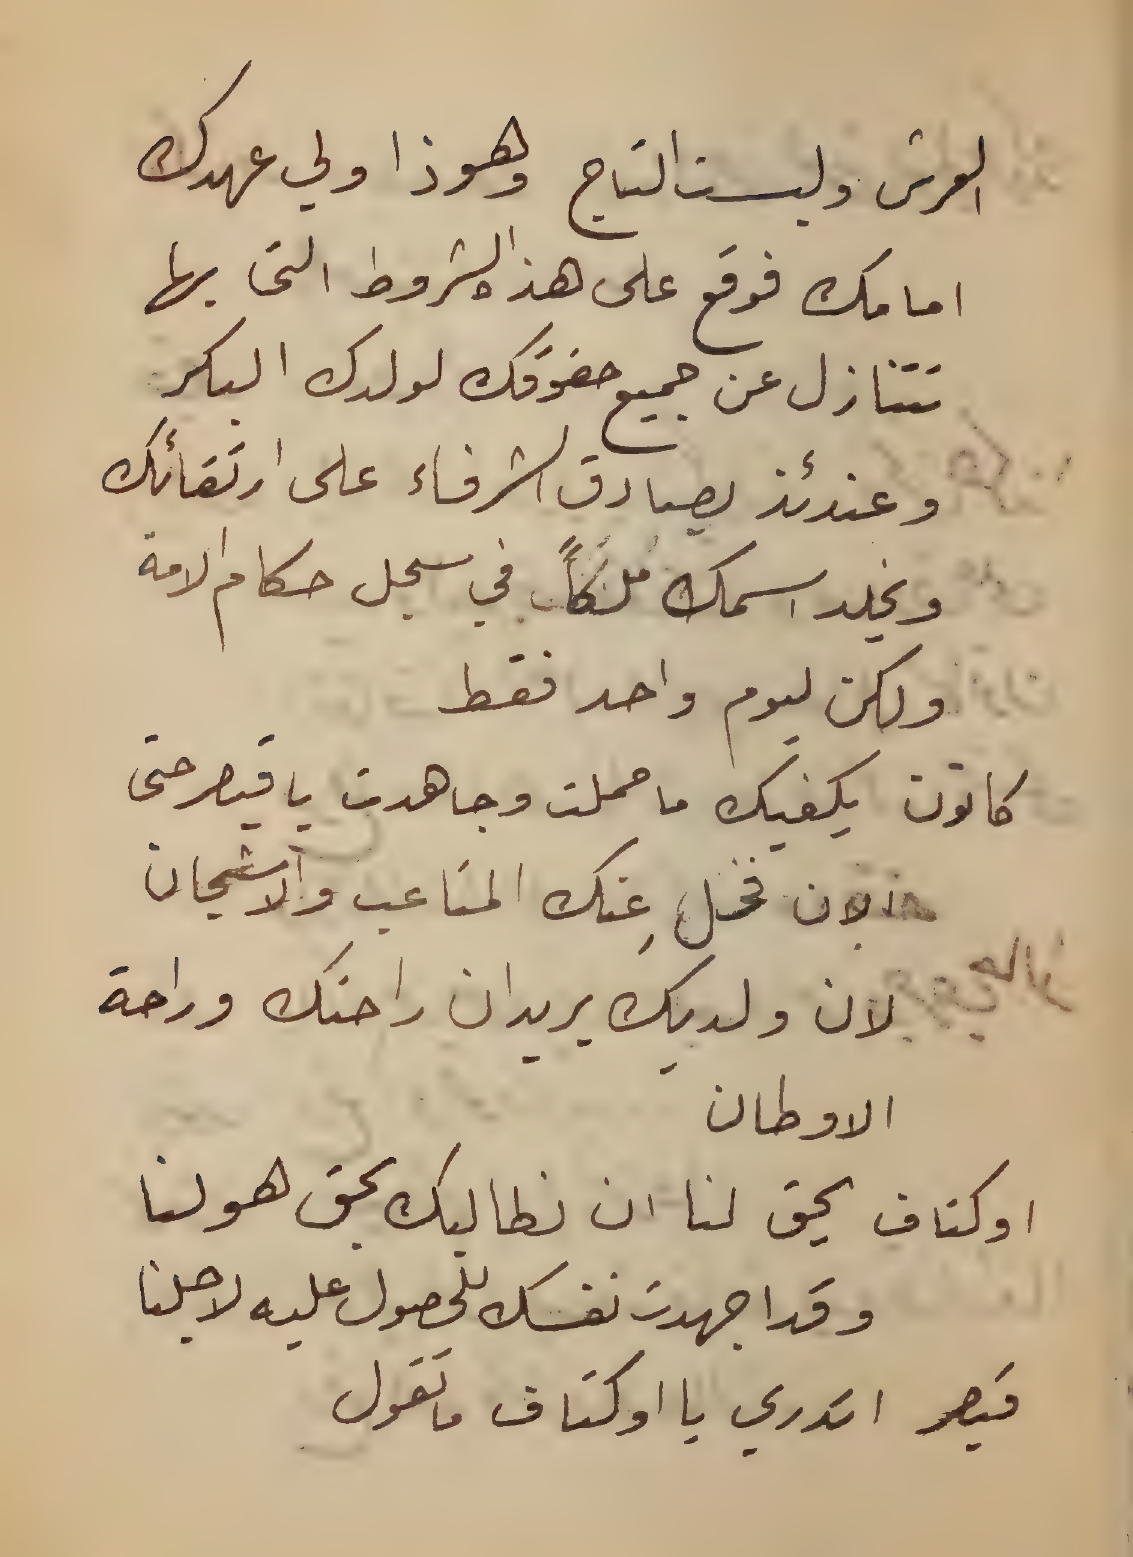 العرش وليست التاج وهوذا ولي عهدك
امامك فوقع على هذه الشروط التى بها
تتنازل عن جميع حقوقك لولدك البكر
وعندئذ يصادق الشرفاء على ارتقائك
ويخلد اسمك مُلكاً في سجل حكام الامة
ولكن ليوم واحد فقط
كاتون يكفيك ما حملت وجاهدت يا قيصر حتى
الان فخل عنك المتاعب والاشجان
لان ولديك يريدان راحتك وراحة
الاوطان
اوكتاف يحق لنا ان نطالبك بحق هو لنا
وقد اجهدت نفسك للحصول عليه لاجلنا
قيصر اتدري يا اوكتاف ما تقول